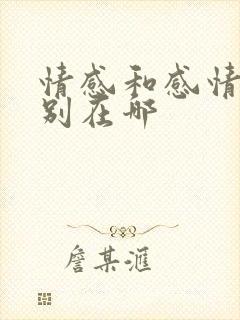 情感和感情
别在哪
詹某滙